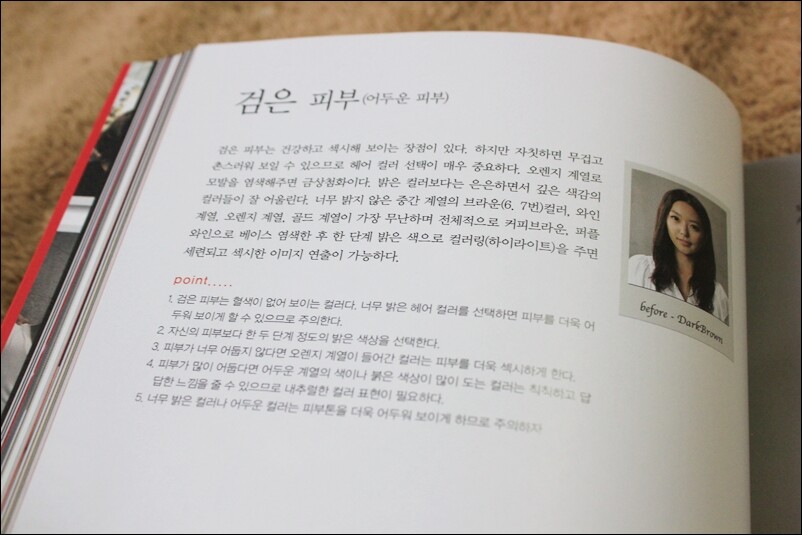 검은 피부(어두운 피부)
검은 피부는 건강하고 섹시해 보이는 장점이 있다. 하지만 자칫하면 무겁고
촌스러워 보일 수 있으므로 헤어 컬러 선택이 매우 중요하다. 오렌지 계열로
모발을 염색해주면 금상첨화이다. 밝은 컬러보다는 은은하면서 깊은 색감의
컬러들이 잘 어울린다. 너무 밝지 않은 중간 계열의 브라운(6, 7번)컬러, 와인
계열, 오렌지 계열, 골드 계열이 가장 무난하며 전체적으로 커피브라운, 퍼플
와인으로 베이스 염색한 후 한 단계 밝은 색으로 컬러링(하이라이트)을 주면
세련되고 섹시한 이미지 연출이 가능하다.
point.....
1. 검은 피부는 혈색이 없어 보이는 컬러다. 너무 밝은 헤어 컬러를 선택하면 피부를 더욱 어
두워 보이게 할 수 있으므로 주의한다.
2. 자신의 피부보다 한 두 단계 정도의 밝은 색상을 선택한다.
3. 피부가 너무 어둡지 않다면 오렌지 계열이 들어간 컬러는 피부를 더욱 섹시하게 한다.
4. 피부가 많이 어둡다면 어두운 계열의 색이나 붉은 색상이 많이 도는 컬러는 칙칙하고 답
답한 느낌을 줄 수 있으므로 내추럴한 컬러 표현이 필요하다.
5. 너무 밝은 컬러나 어두운 컬러는 피부톤을 더욱 어두워 보이게 하므로 주의하자
before - DarkBrown